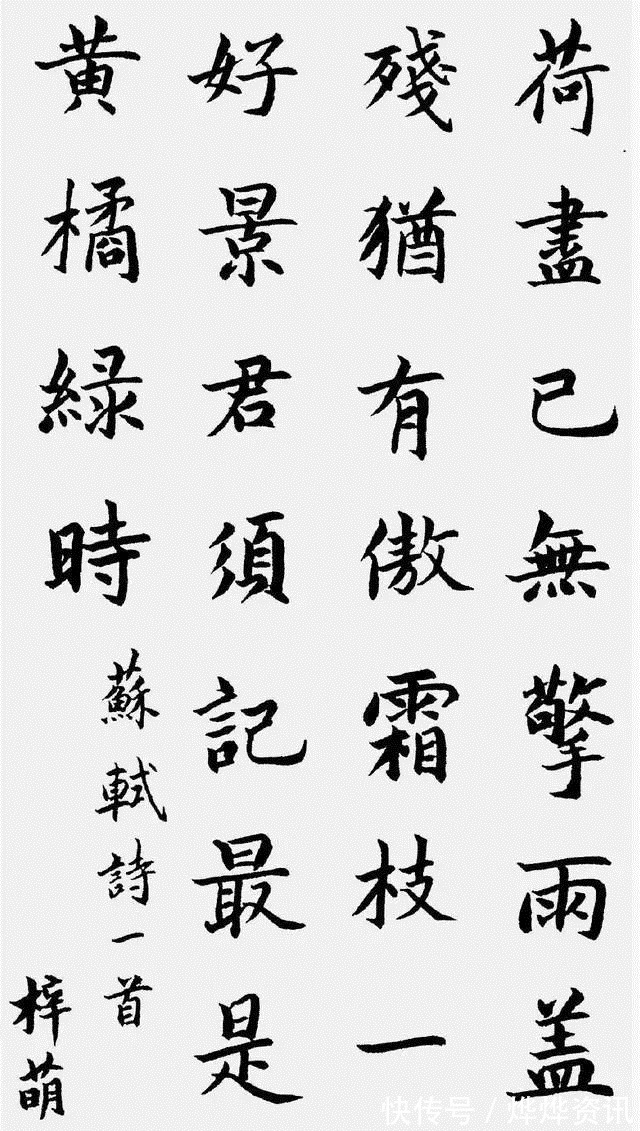 荷盡已無擎雨盖
殘猶有傲霜枝一
好景君須記最是
黄橘綠時
蘇軾詩一首
梓萌
快传号/烨烨资讯